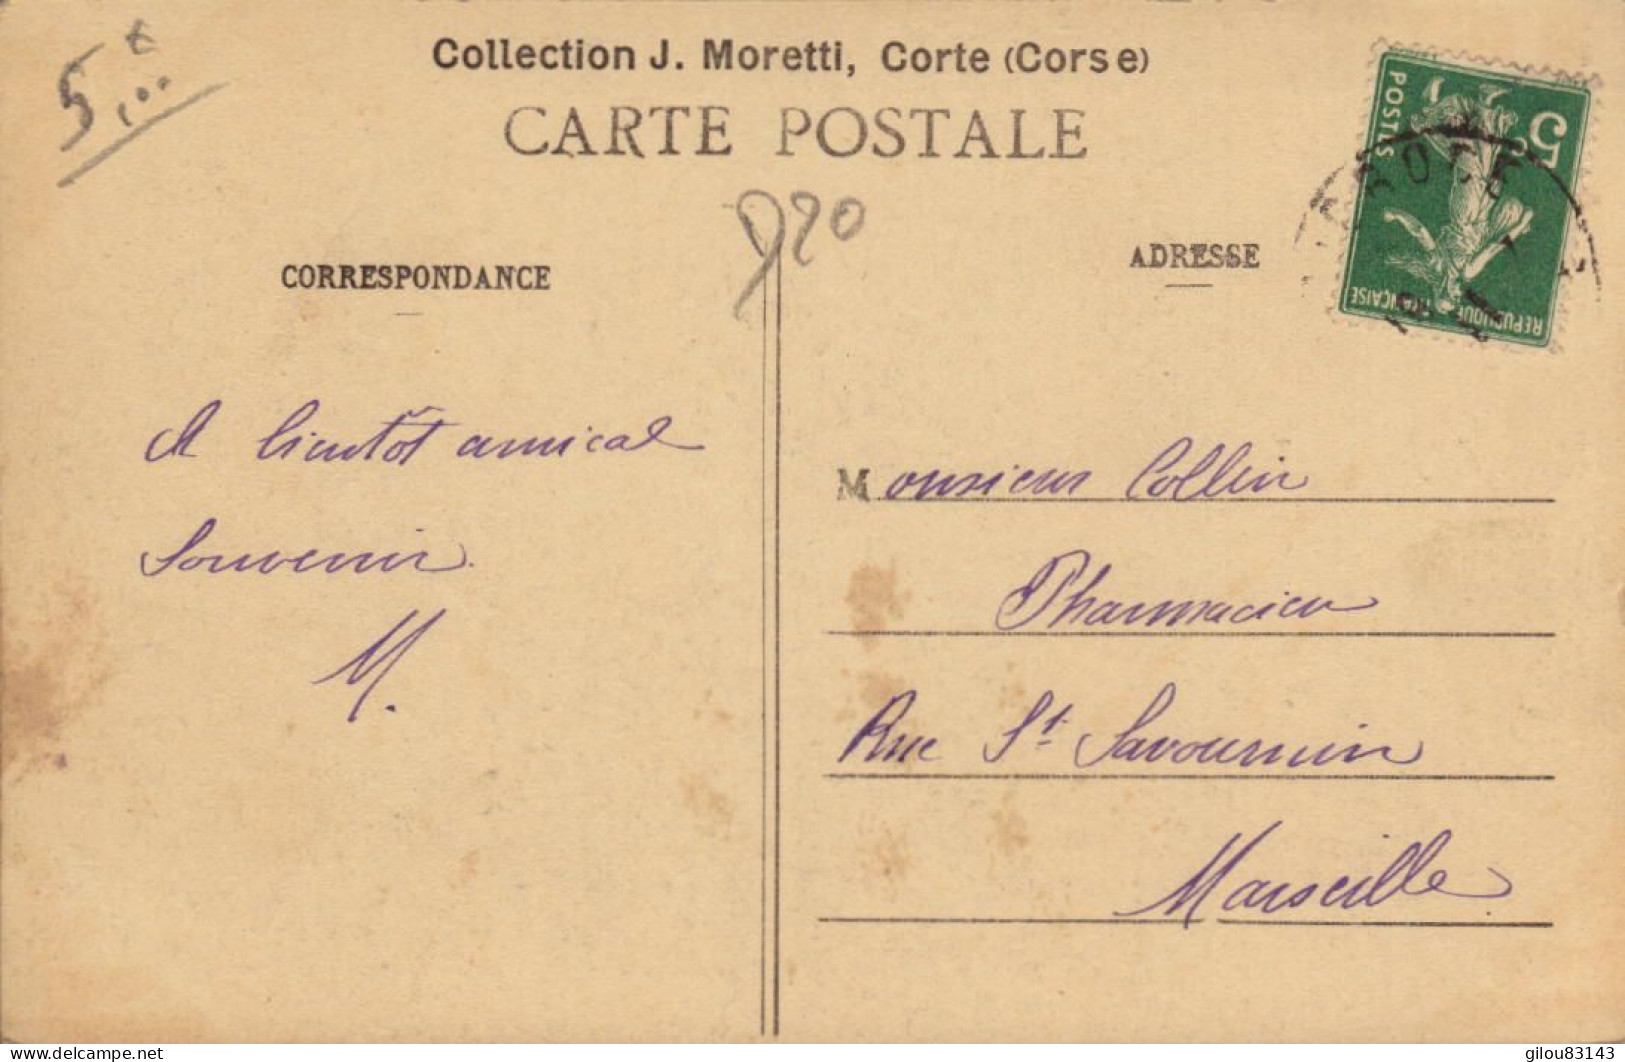 5,00 €
Collection J. Moretti, Corte (Corse)
CARTE POSTALE
920
POSTES
5
REPUBLIQUE FRANÇAISE
CORRESPONDANCE
ADRESSE
A bientôt amical
Souvenir
M.
Monsieur Collin
Pharmacien
Rue St Savournin
Marseille
delcampe.net
gilou83143